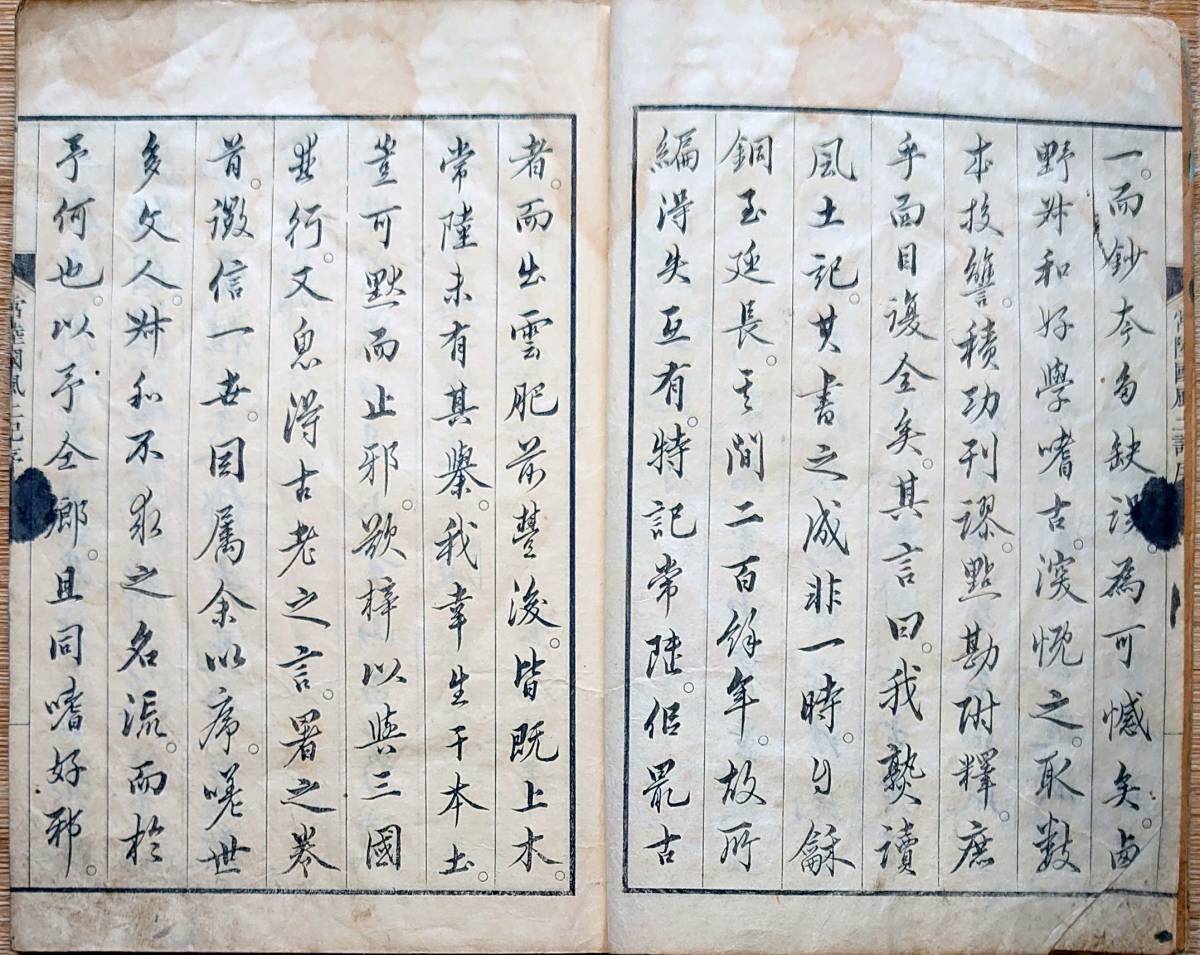 一。而鈔本多缺誤。為可憾矣。西
野叔和好學嗜古。深慨之。取數
本校讐。積功刊謬。點勘附釋。庶
乎面目復全矣。其言曰。我熟讀
風土記。其書之成非一時。自龢
銅至延長。其間二百餘年。故所
編得失互有。特記常陸。侣最古
者。而出雲肥前豐後。皆既上木。
常陸未有其擧。我幸生于本土。
豈可默而止邪。欲梓以與三國
並行。又恖得古老之言。署之卷
首。徵信一世。因屬余以序。嗟世
多文人。叔和不求之名流。而於
予何也。以予仝鄉。且同嗜好邪。
常陸國風土記序
常陸國風土記序